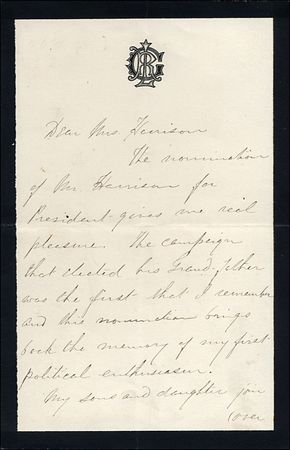 Dear Mrs Harrison
The nomination
of Mr. Harrison for
President gives me real
pleasure. The campaign
that elected his Grand father
was the first that I remember
and this nomination brings
back the memory of my first
political enthusiasm.
My sons and daughter join
(over